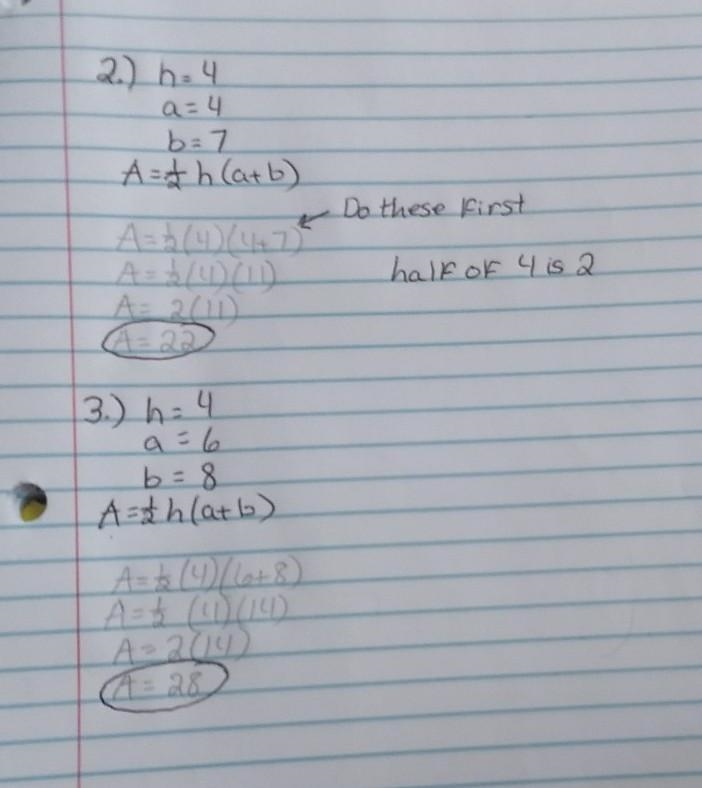 2.) h = 4
a = 4
b = 7
A = ½ h (a+b)
Do these first
A = ½ (4)(4+7)
A = ½ (4)(11)
half of 4 is 2
A = 2(11)
A = 22
3.) h = 4
a = 6
b = 8
A = ½ h (a+b)
A = ½ (4)(6+8)
A = ½ (4)(14)
A = 2(14)
A = 28